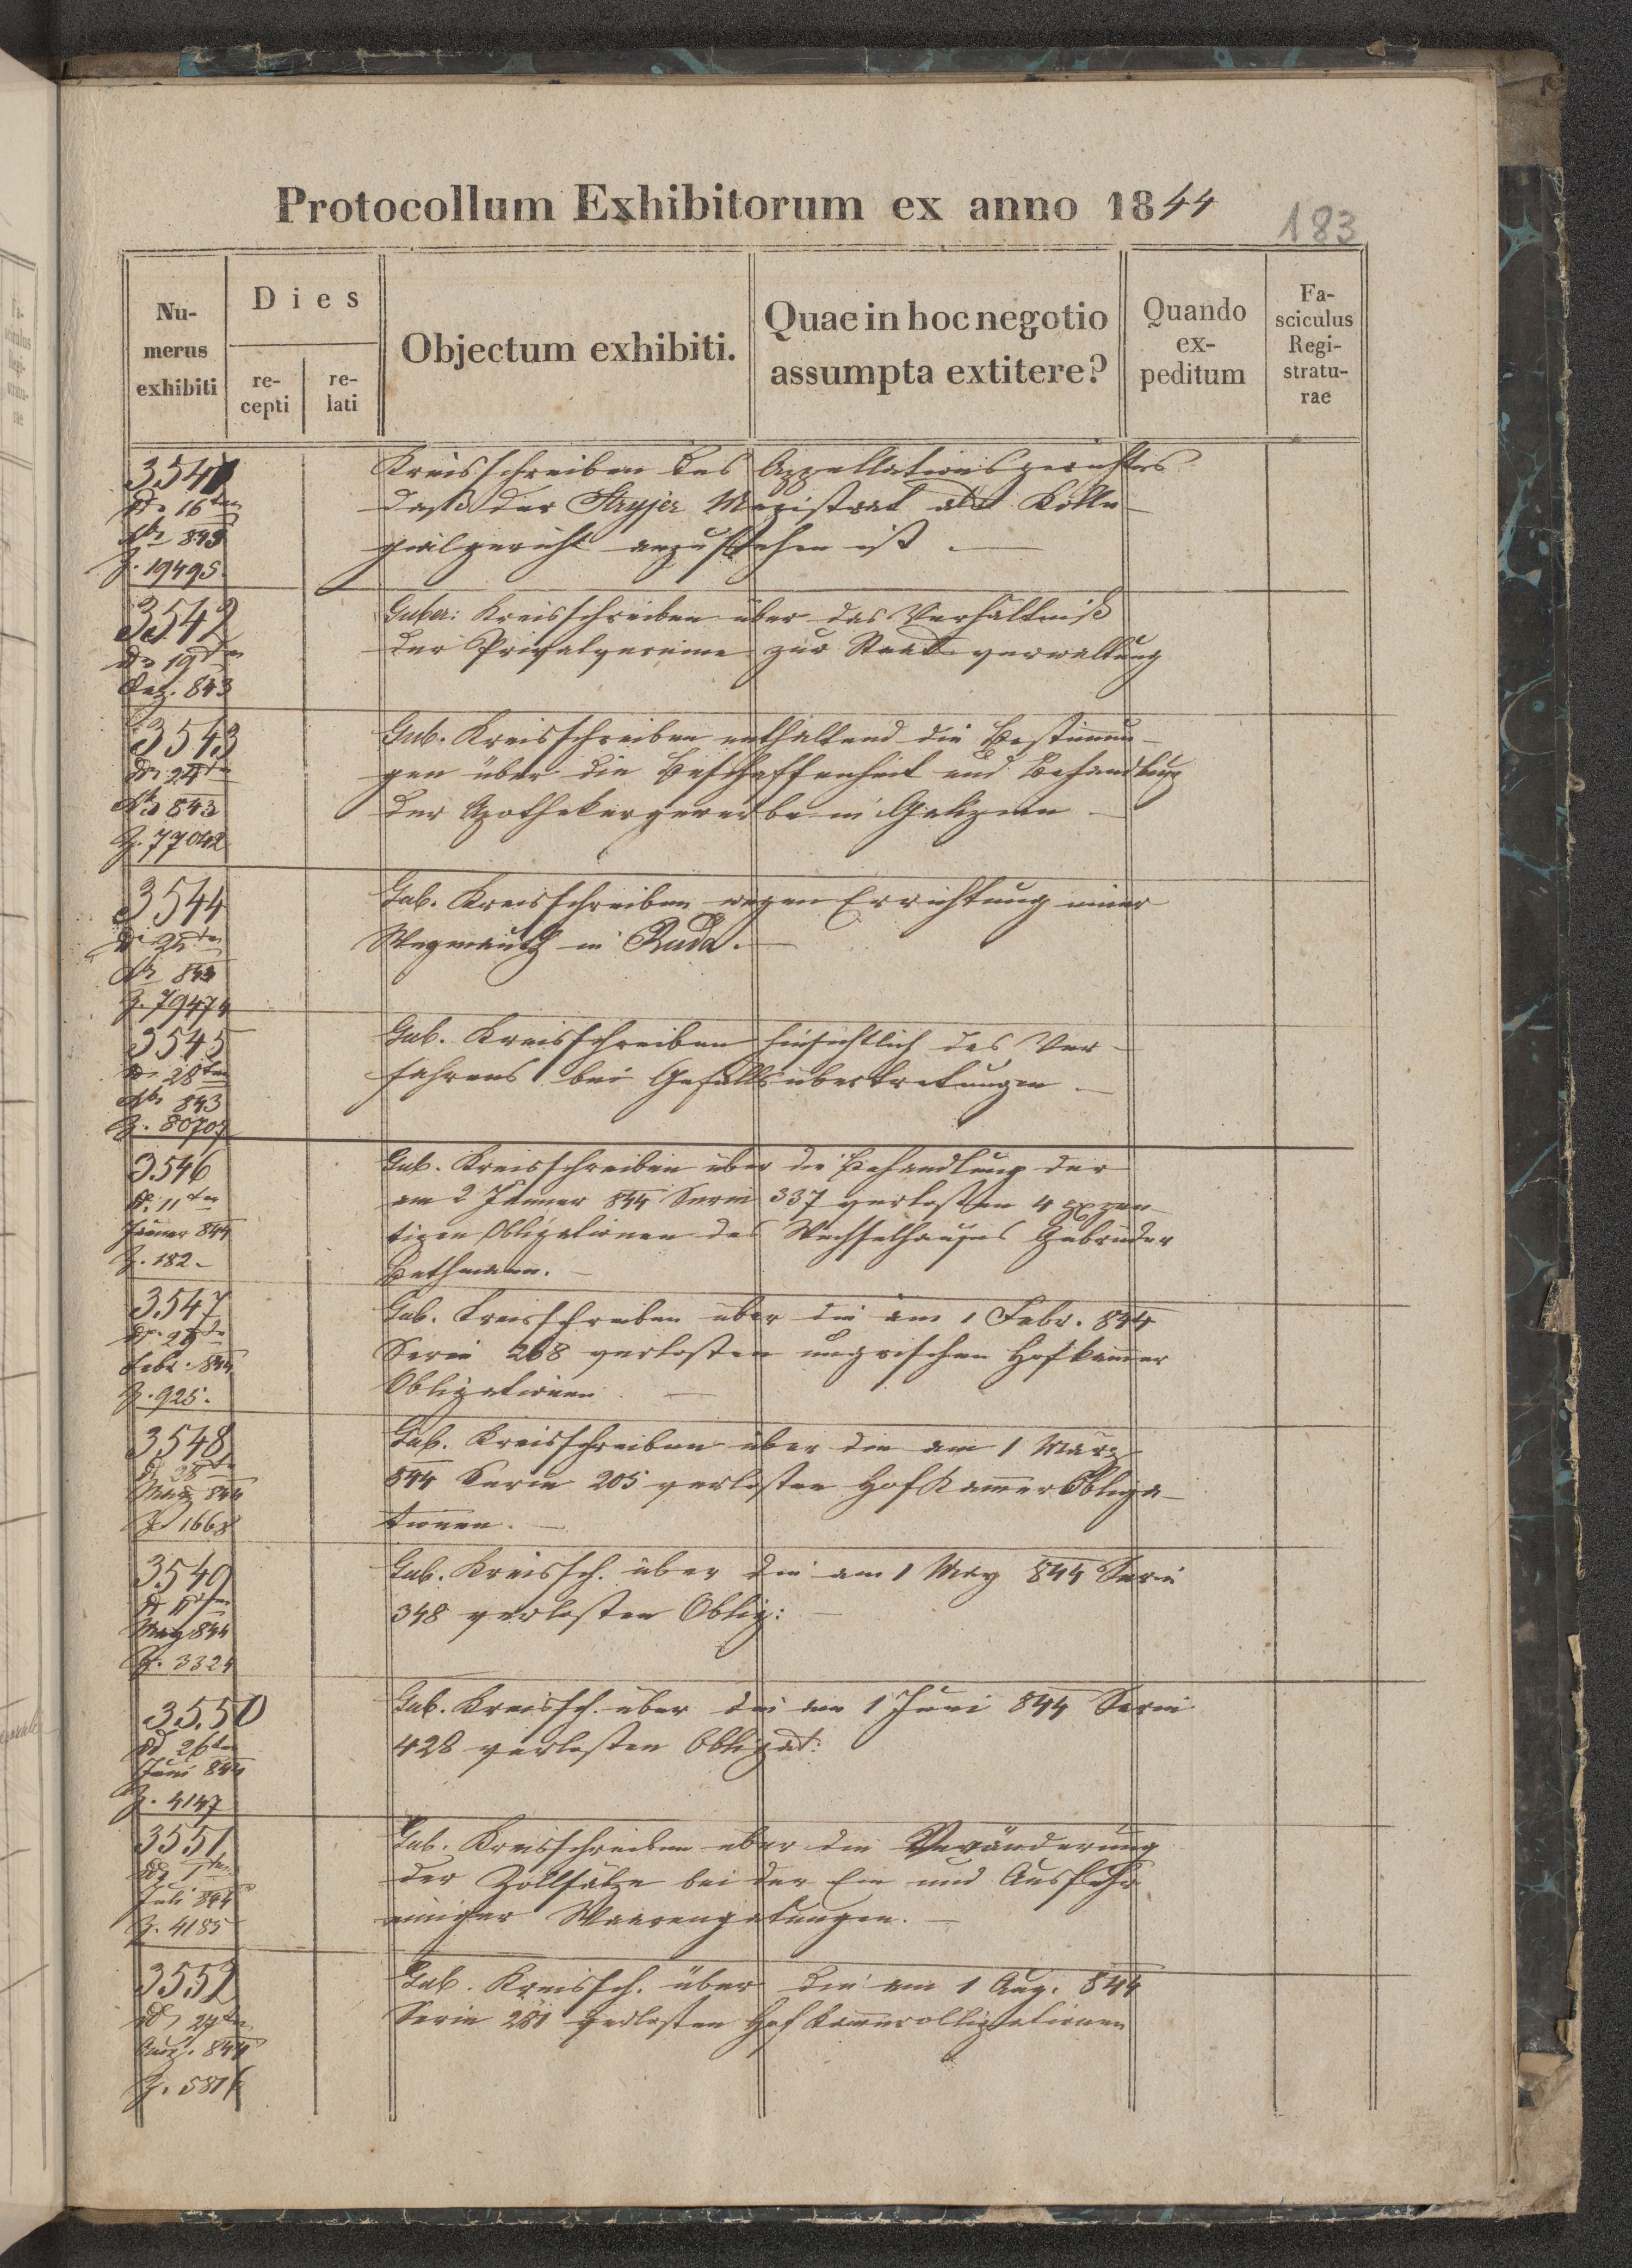 Protocollum Exhibitorum ex anno 1844
183
Nu-
merus
exhibiti
Dies
re-
cepti
re-
lati
Objectum exhibiti.
Quae in hoc negotio
assumpta extitere?
Quando
ex-
peditum
Fa-
sciculus
Regi-
stratu-
rae
3541
16ten
843
Z. 19495
Kreisschreiben des Appellationsgerichtes
daß der Stryjer Magistrat als Kolle-
gialgericht anzusehen ist.
3542
19ten
Dez. 843
Guber: Kreisschreiben über das Verhältniß
der Privatvereine zur Staatsverwaltung
3543
24ten
843
Z. 77042
Gub. Kreisschreiben enthaltend die Bestimmun-
gen über die Beschaffenheit und Behandlung
der Apothekergewerbe in Galizien
3544
25ten
843
Z. 79474
Gub. Kreisschreiben wegen Errichtung einer
Wegmauth in Ruda.
3545
28ten
843
Z. 80707
Gub. Kreisschreiben hinsichtlich des Ver-
fahrens bei Gefällsübertretungen
3546
11ten
Jänner 844
Z. 182
Gub. Kreisschreiben über die Behandlung der
am 2 Jänner 844 Serie 337 verlosten 4 perzen-
tigen Obligationen des Wechselhauses Gebrüder
Bethmann.
3547
Febr. 844
Z. 925.
Gub. Kreisschreiben über die am 1 Febr. 844
Serie 268 verlosten ungrischen Hofkammer
Obligationen
3548
28ten
März 844
Z 1668
Gub. Kreisschreiben über die am 1 März
844 Serie 205 verlosten Hofkammer Obliga-
tionen.
3549
May 844
Z. 3324
Gub. Kreissch. über die am 1 May 844 Serie
348 verlosten Oblig:
3550
26ten
Juni 844
Z. 4147
Gub. Kreissch. über die am 1 Juni 844 Serie
428 verlosten Obligat:
3551
Juli 844
Z. 4185
Gub. Kreisschreiben über die Veränderung
der Zollsätze bei der Ein und Ausfuhr
einiger Waarengatungen.
3552
27ten
Aug. 844
Gub. Kreissch. über die am 1 Aug. 844
Serie 281 verlosten Hofkammerobligationen